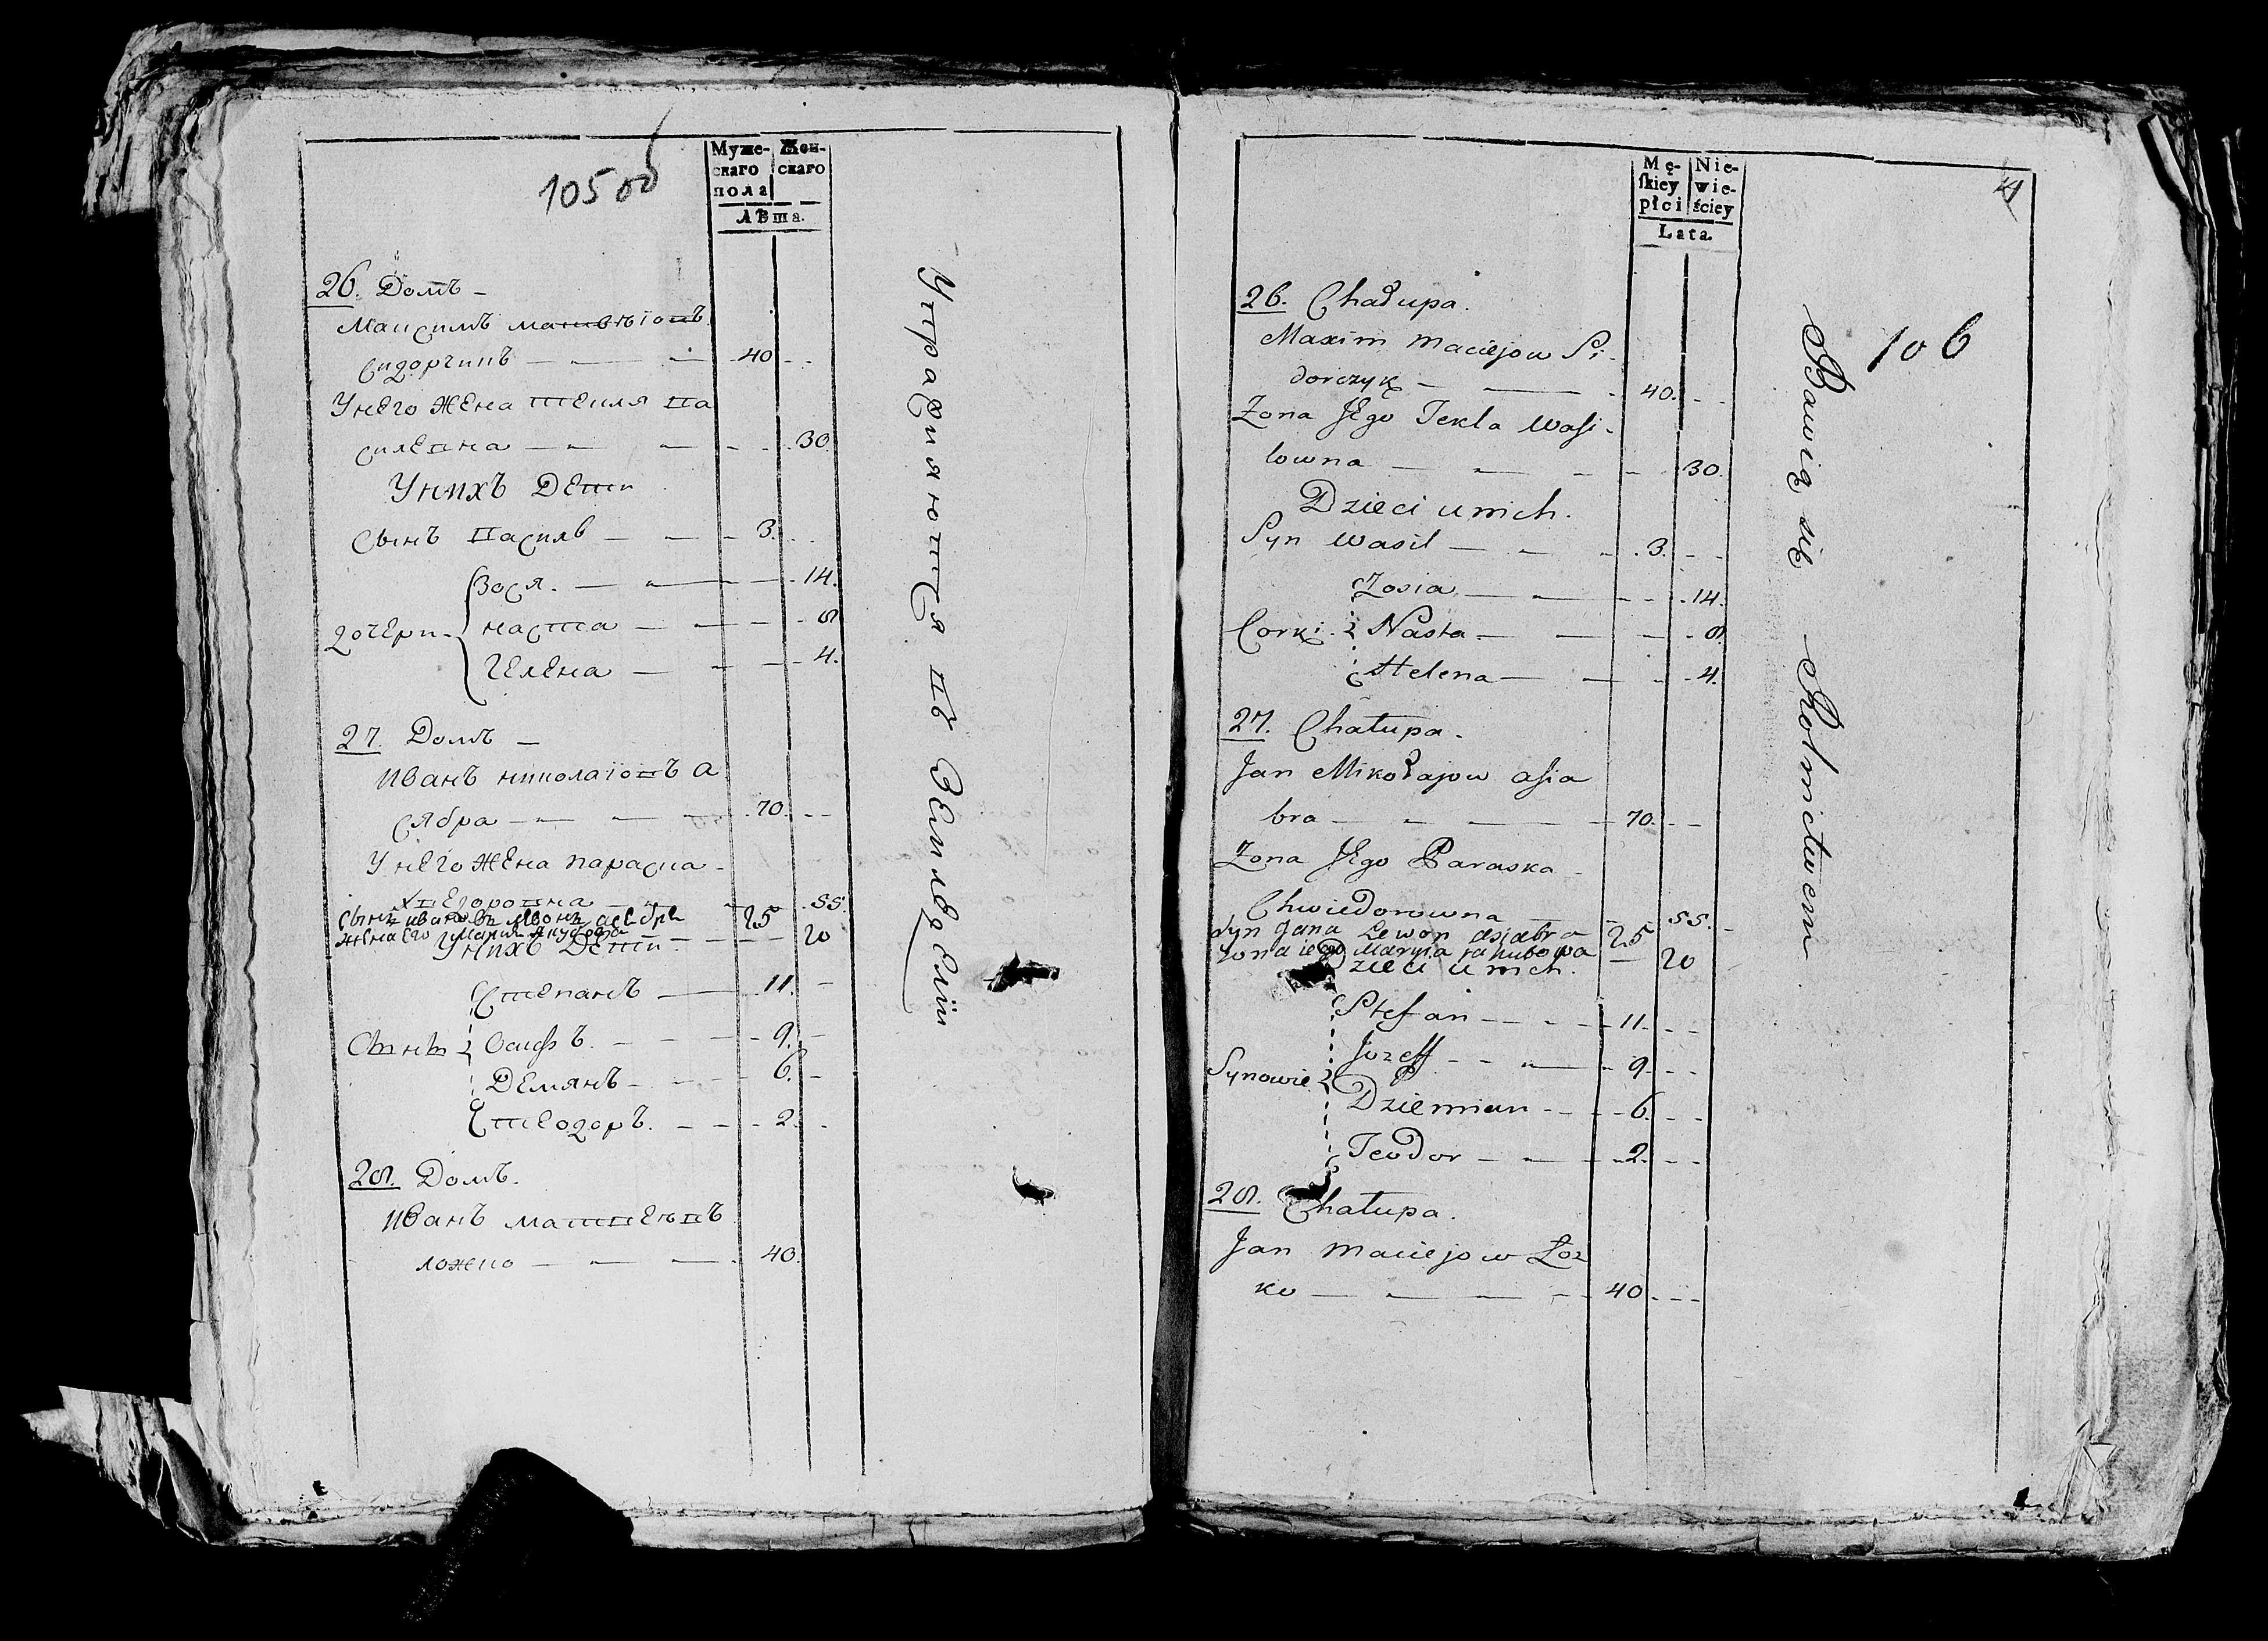 105 об
Муже-
скаго
пола
Жен-
скаго
Лѣта.
26. Домъ –
Максимъ матвѣіовъ
Сидорчикъ — — — 40
Унего жена текля ва
силевна — — — 30.
Унихъ Дети
Сынъ василь — — 3.
дочери
Зося. — — 14.
наста — — 8
гелена — — 4.
27. Домъ –
иванъ николаіовъ а
сябра — — — 70.
Унего жена параска –
хведоровна — — 55.
Сынъ ивановъ Левонъ асябра 25
жена его Мария Якубова — — 20
Унихъ Дети
Сыны
Степанъ — 11.
Осифъ. — 9.
Демянъ — 6.
теодоръ. — 2.
28. Домъ.
иванъ матвеевъ
ложко — — — 40.
Упражняются въ земледелiи
4
106
Mę-
skiey
płci
Nie-
wie-
ściey
Lata.
26. Chałupa.
Maxim Maciejow Si-
dorczyk — — 40.
Zona Jego Tekla Wasi-
lowna — — — 30.
Dzieci u nich.
Syn Wasil — — 3.
Corki
Zosia — — 14.
Nasta — — 8
Helena — — 4.
27. Chałupa.
Jan Mikołajow asia
bra — — — 70.
Zona Jego Paraska
Chwiedorowna — 55.
Syn Jana Lewon asiabra 25
zona iego Maryia Jakubowa — 20
Dzieci u nich.
Synowie
Stefan — — 11.
Jozeff — — 9.
Dziemian — — 6.
Teodor — — 2.
28. Chałupa.
Jan Maciejow Łoz
ko — — — 40
Bawią się Rolnictwem